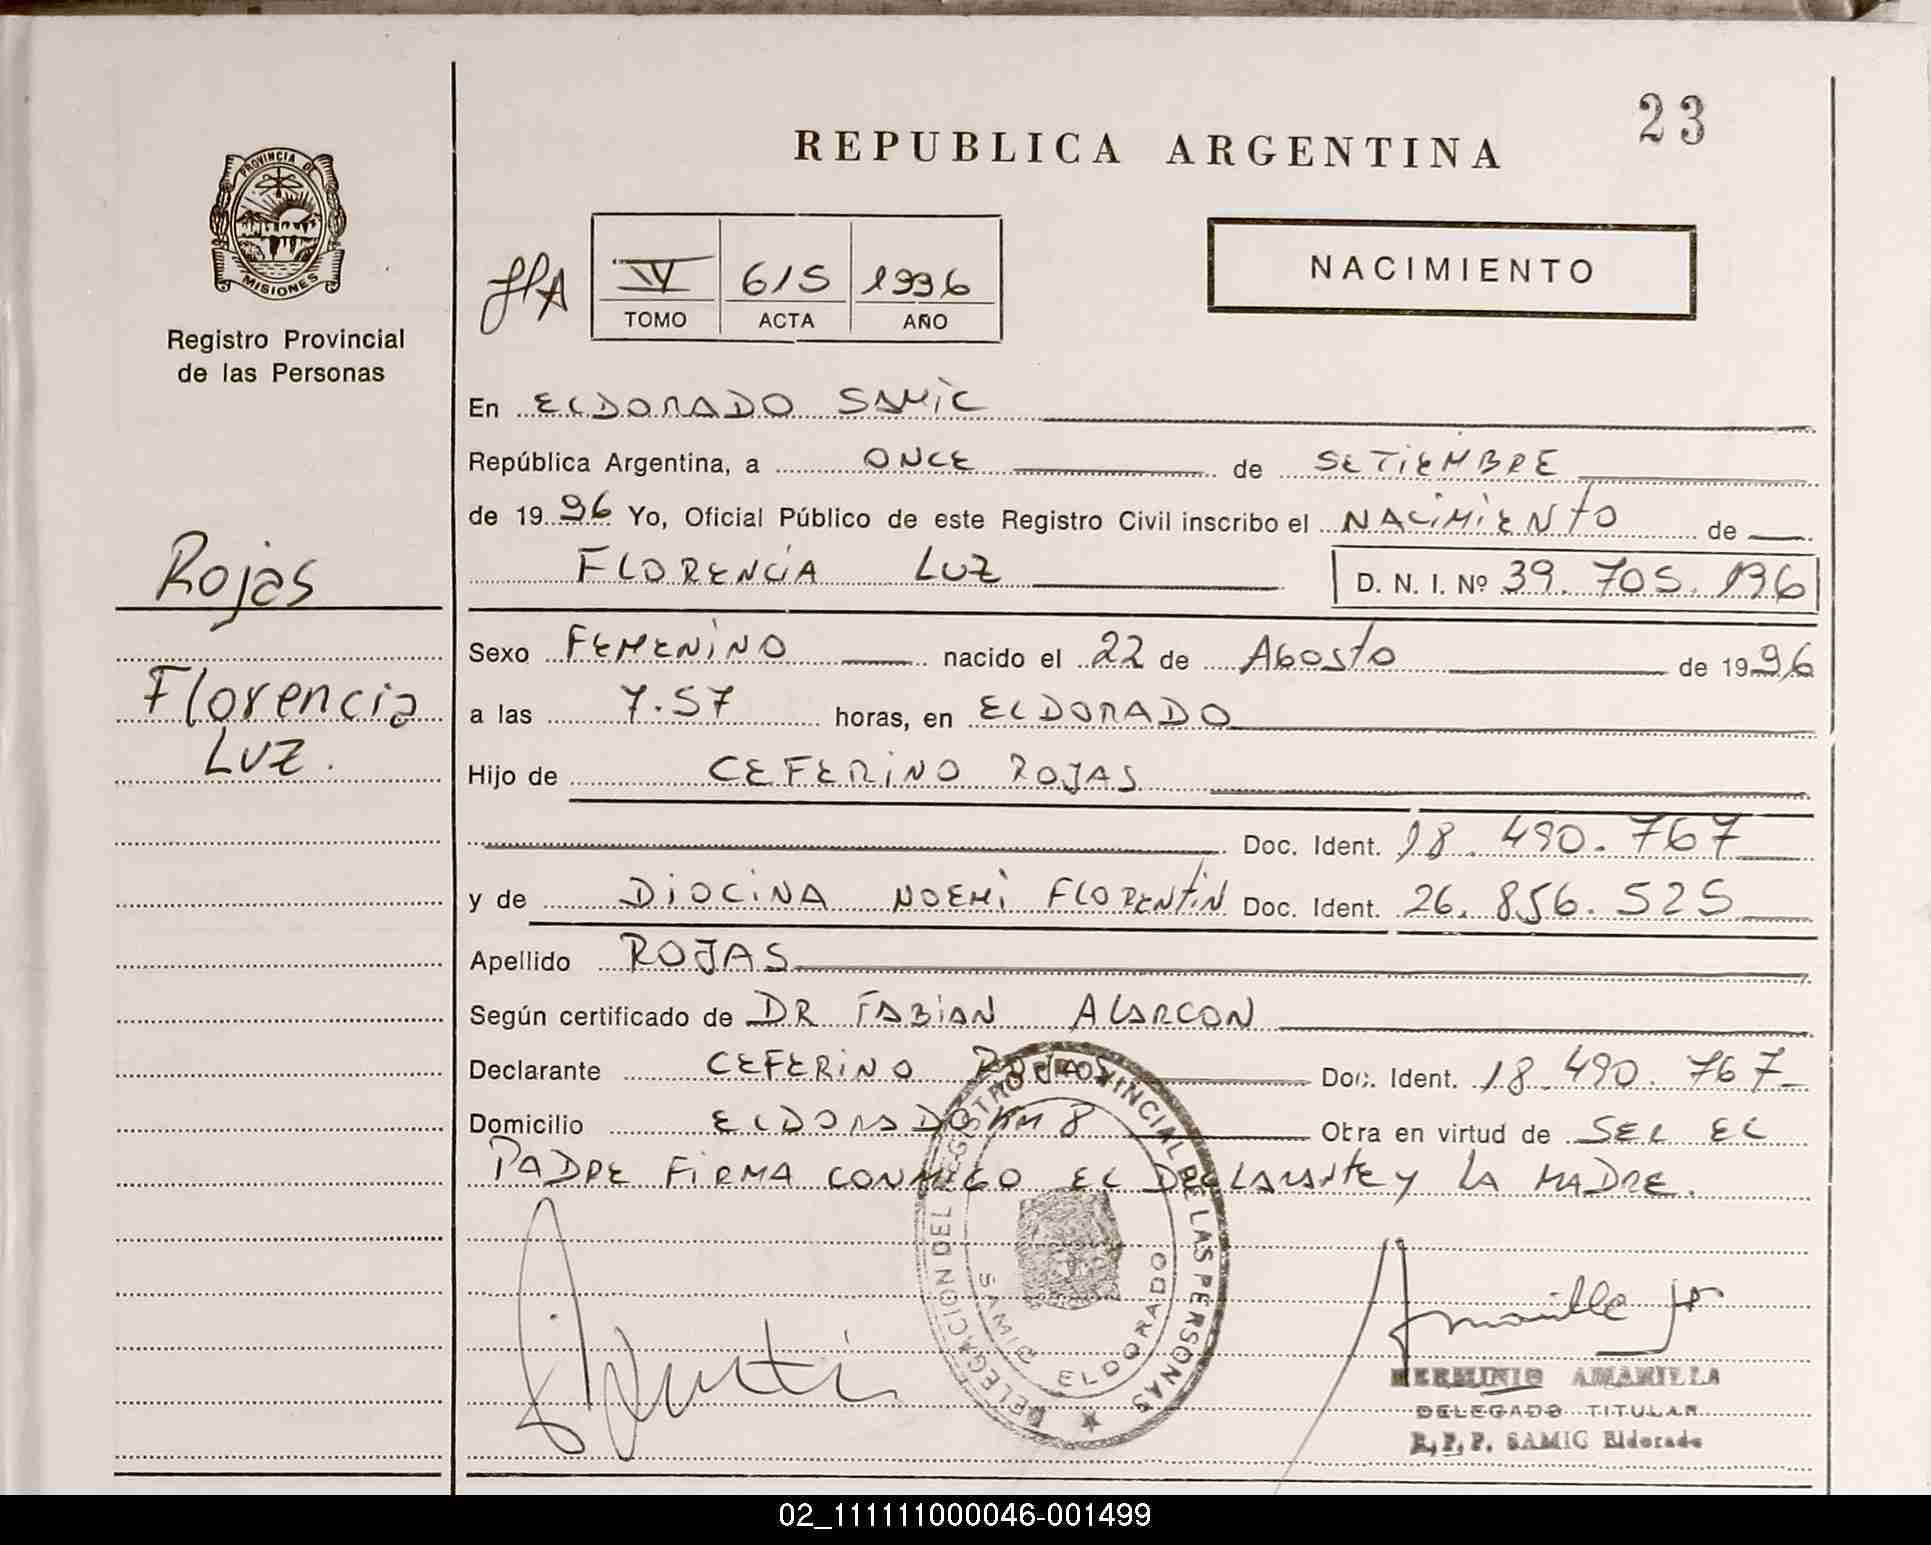 23
REPUBLICA ARGENTINA
PROVINCIA DE
MISIONES
Registro Provincial
de las Personas
IV 615 1996
TOMO ACTA AÑO
NACIMIENTO
En ELDORADO SAMIC
República Argentina, a ONCE de SETIEMBRE
de 1996 Yo, Oficial Público de este Registro Civil inscribo el NACIMIENTO de
FLORENCIA LUZ D. N. I. Nº 39.705.196
Rojas
Florencia
LUZ.
Sexo FEMENINO nacido el 22 de AGOSTO de 1996
a las 7.57 horas, en ELDORADO
Hijo de CEFERINO ROJAS
Doc. Ident. 18.490.767
y de DIOCINA NOEMI FLORENTIN Doc. Ident. 26.856.525
Apellido ROJAS
Según certificado de DR FABIAN ALARCON
Declarante CEFERINO ROJAS Doc. Ident. 18.490.767
Domicilio ELDORADO KM 8 Obra en virtud de SER EL
PADRE FIRMA CONMIGO EL DECLARANTE Y LA MADRE.
DELEGACION DEL REGISTRO PROVINCIAL DE LAS PERSONAS
SAMIC ELDORADO
HERMINIO AMARILLA
DELEGADO TITULAR
R.P.P. SAMIC Eldorado
02_111111000046-001499